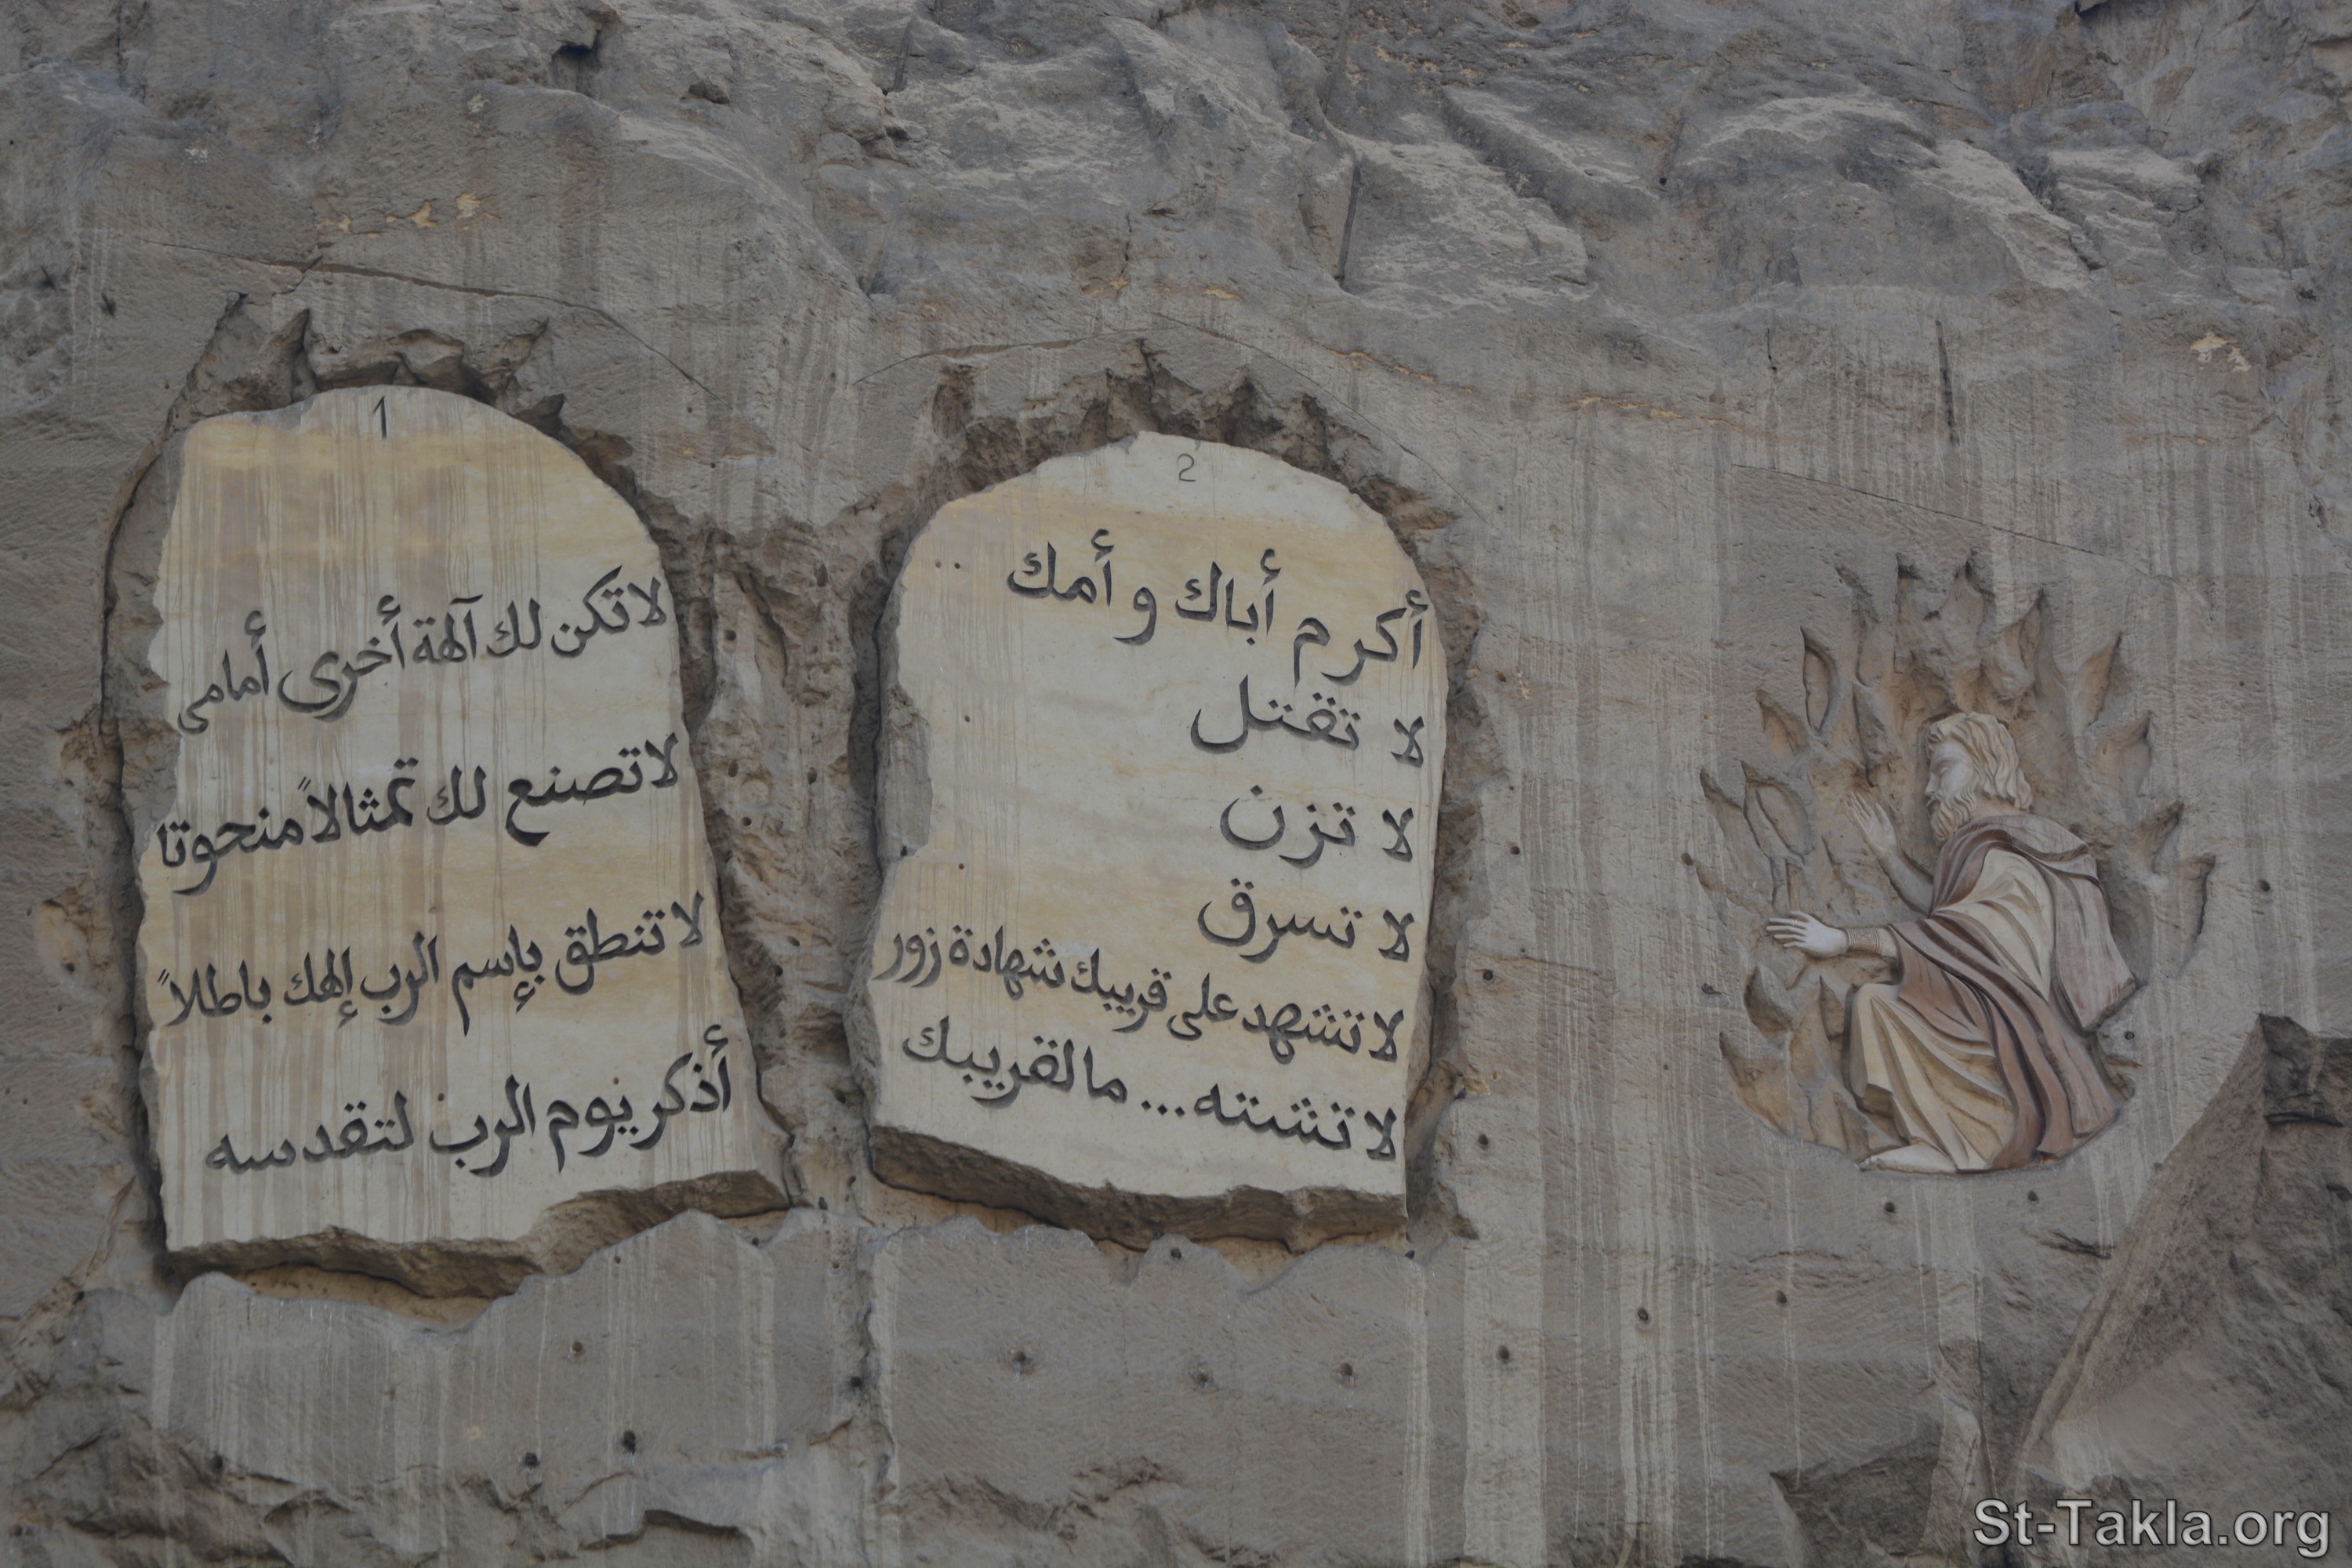 1
لا تكن لك آلهة أخرى أمامى
لا تصنع لك تمثالاً منحوتا
لا تنطق بإسم الرب إلهك باطلاً
أذكر يوم الرب لتقدسه
2
أكرم أباك و أمك ...
لا تقتل
لا تزن
لا تسرق
لا تشهد على قريبك شهادة زور
لا تشته ... ما لقريبك
St-Takla.org